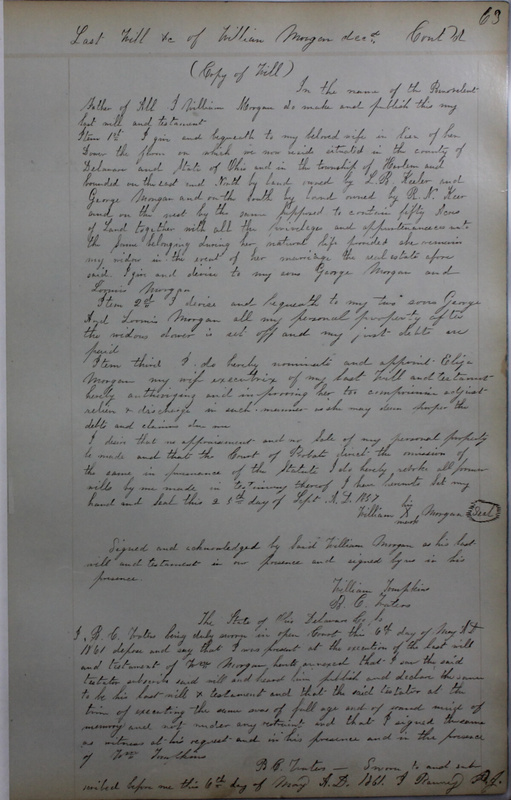 63
Last Will &c of William Morgan decd. Cont'd
(Copy of Will)
In the name of the Benevolent
Father of All I William Morgan do make and publish this my
last will and testament
Item 1st I give and bequeath to my beloved wife in lieu of her
Dower the farm on which we now reside situated in the county of
Delaware and State of Ohio and in the township of Harlem and
bounded on the east and North by land owned by L. R. Keeler and
George Morgan and on the South by land owned by R. N. Keer
and on the west by the same Supposed to contain fifty Acres
of Land together with all the privileges and appurtenances unto
the same belonging during her natural life provided she remain
my widow in the event of her marriage the real estate afore
said I give and devise to my sons George Morgan and
Loomis Morgan
Item 2d I devise and bequeath to my two sons George
And Loomis Morgan all my personal property after
the widows dower is set off and my just debts are
paid
Item third I do hereby nominate and appoint Eliza
Morgan my wife executrix of my last Will and testament
hereby authorizing and empowering her to compromise adjust
release & discharge in such manner as she may deem proper the
debts and claims due me
I desire that no appraisement and no Sale of my personal property
be made and that the Court of Probate direct the omission of
the same in pursuance of the Statute I do hereby revoke all former
wills by me made in testimony thereof I have hereunto Set my
hand and Seal this 25th day of Sept. A.D. 1857
William his X mark Morgan Seal
Signed and acknowledged by Said William Morgan as his last
will and testament in our presence and signed by us in his
presence
William Tompkins
B. C. Waters
The State of Ohio Delaware Co. ss
I, B. C. Waters being duly sworn in open Court this 6th day of May AD
1861 depose and say that I was present at the execution of the last will
and testament of Wm Morgan, hereto annexed that I saw the said
testator subscribe said will and heard him publish and declare the same
to be his last will & testament and that the said testator at the
time of executing the same was of full age and of sound mind &
memory and not under any restraint and that I signed the same
as witness at his request and in his presence and in the presence
of Wm Tompkins
B C Waters — Sworn to and sub
scribed before me this 6th day of May A.D. 1861. P. J.